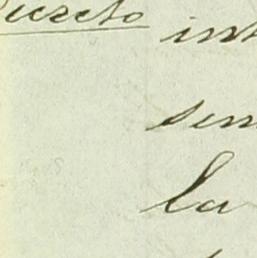 Decreto
int
sen
la